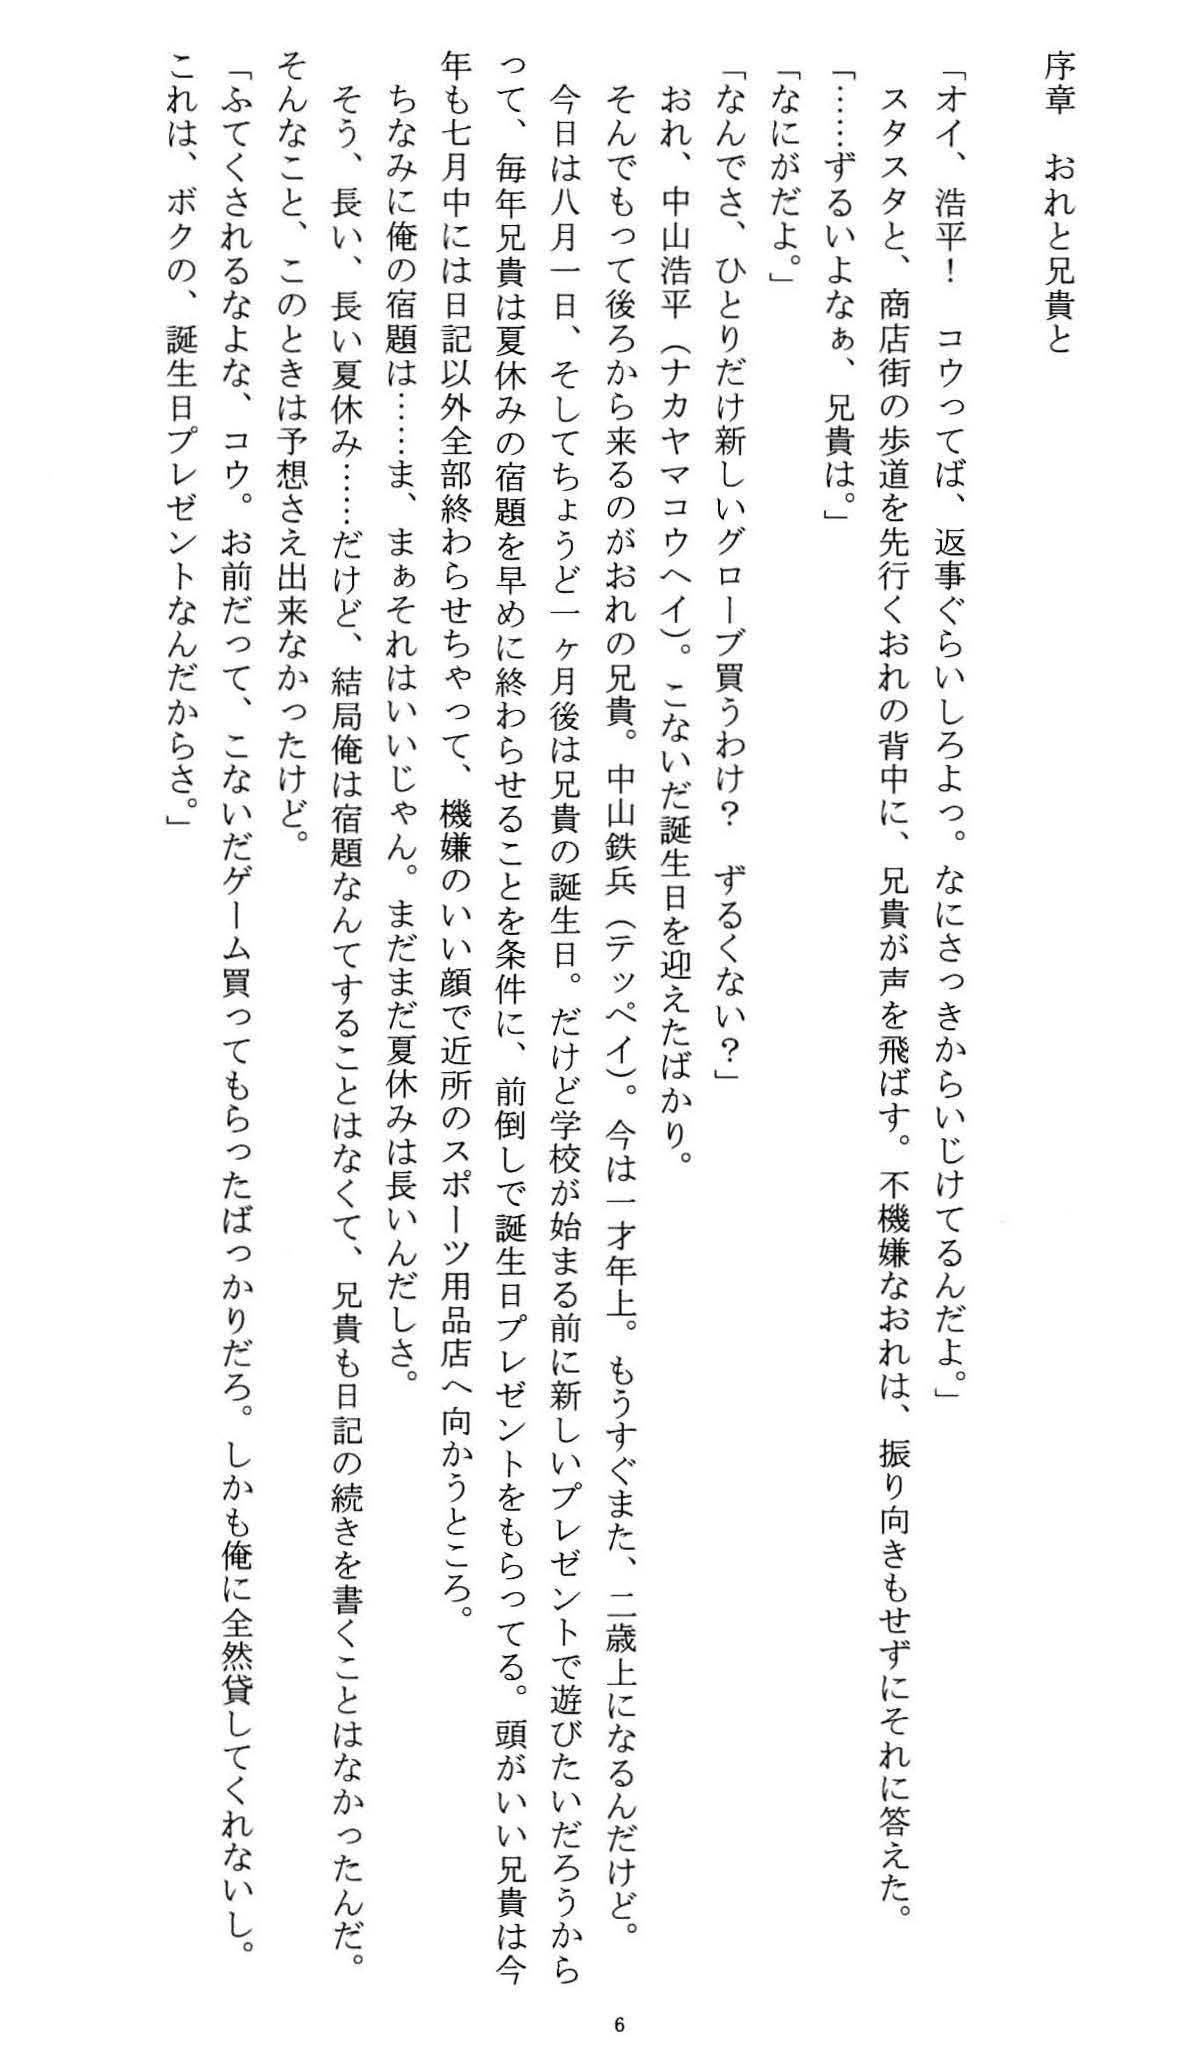 序章　おれと兄貴と
「オイ、浩平！　コウってば、返事ぐらいしろよっ。なにさっきからいじけてるんだよ。」
　スタスタと、商店街の歩道を先行くおれの背中に、兄貴が声を飛ばす。不機嫌なおれは、振り向きもせずにそれに答えた。
「……ずるいよなぁ、兄貴は。」
「なにがだよ。」
「なんでさ、ひとりだけ新しいグローブ買うわけ？　ずるくない？」
　おれ、中山浩平（ナカヤマコウヘイ）。こないだ誕生日を迎えたばかり。
　そんでもって後ろから来るのがおれの兄貴。中山鉄兵（テッペイ）。今は一才年上。もうすぐまた、二歳上になるんだけど。
　今日は八月一日、そしてちょうど一ヶ月後は兄貴の誕生日。だけど学校が始まる前に新しいプレゼントで遊びたいだろうから
って、毎年兄貴は夏休みの宿題を早めに終わらせることを条件に、前倒しで誕生日プレゼントをもらってる。頭がいい兄貴は今
年も七月中には日記以外全部終わらせちゃって、機嫌のいい顔で近所のスポーツ用品店へ向かうところ。
　ちなみに俺の宿題は……ま、まぁそれはいいじゃん。まだまだ夏休みは長いんだしさ。
　そう、長い、長い夏休み……だけど、結局俺は宿題なんてすることはなくて、兄貴も日記の続きを書くことはなかったんだ。
そんなこと、このときは予想さえ出来なかったけど。
「ふてくされるなよな、コウ。お前だって、こないだゲーム買ってもらったばっかりだろ。しかも俺に全然貸してくれないし。
これは、ボクの、誕生日プレゼントなんだからさ。」
6